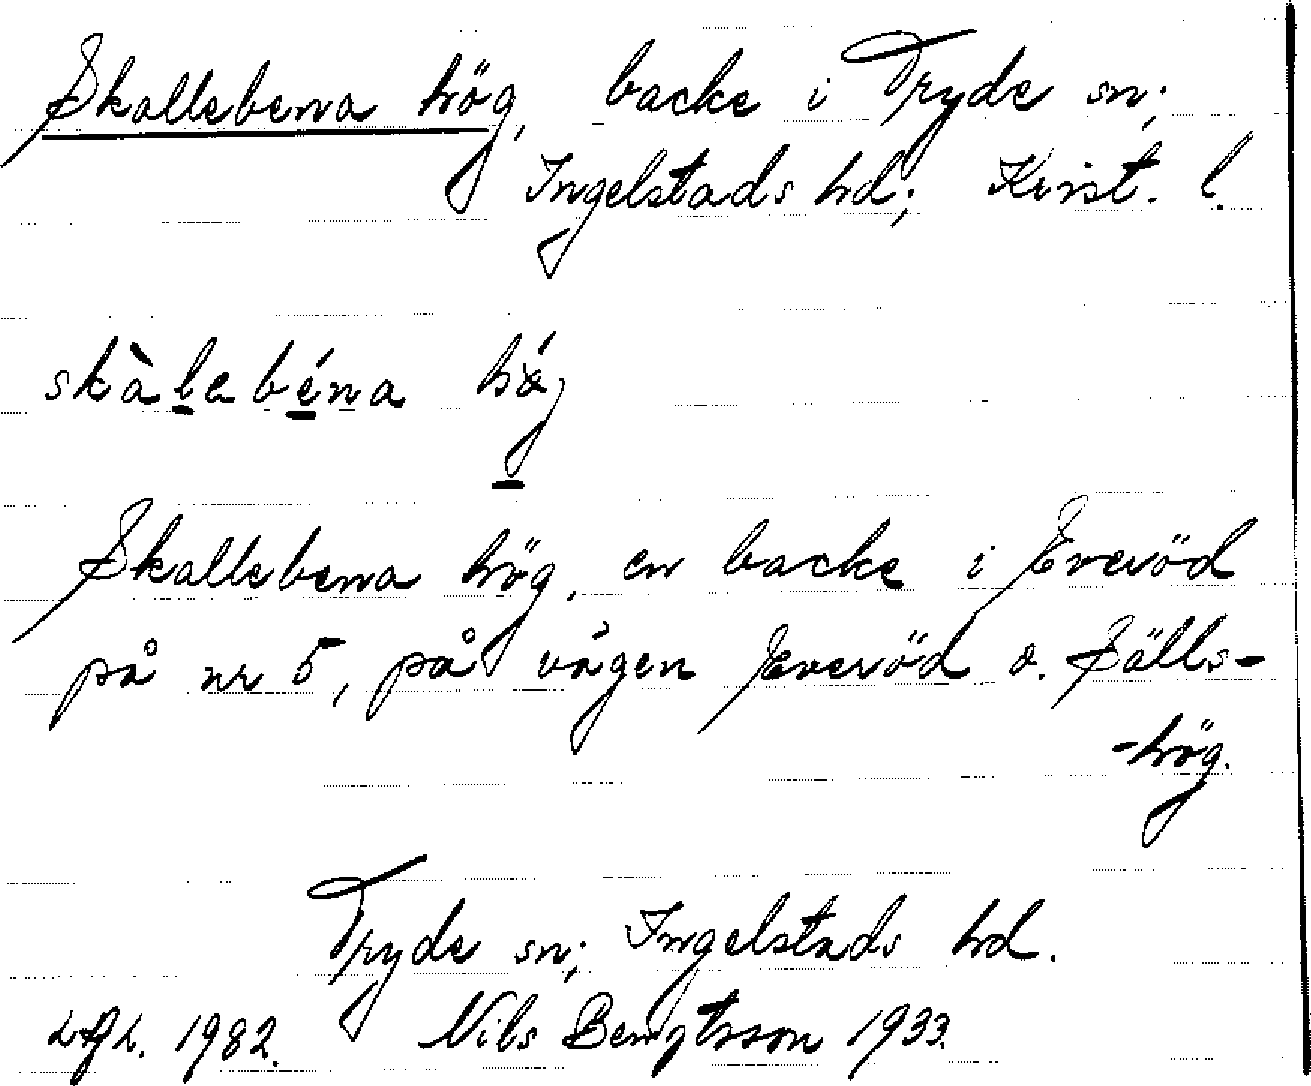 Skallebena hög, backe i Tryde sn;
Ingelstads hd; Krist. l.
skàlebéna hǿg
Skallebena hög, en backe i Everöd
på nr 5, på vägen Everöd o. Sälls-
-hög.
Tryde sn; Ingelstads hd.
1982. Nils Bengtsson 1933.